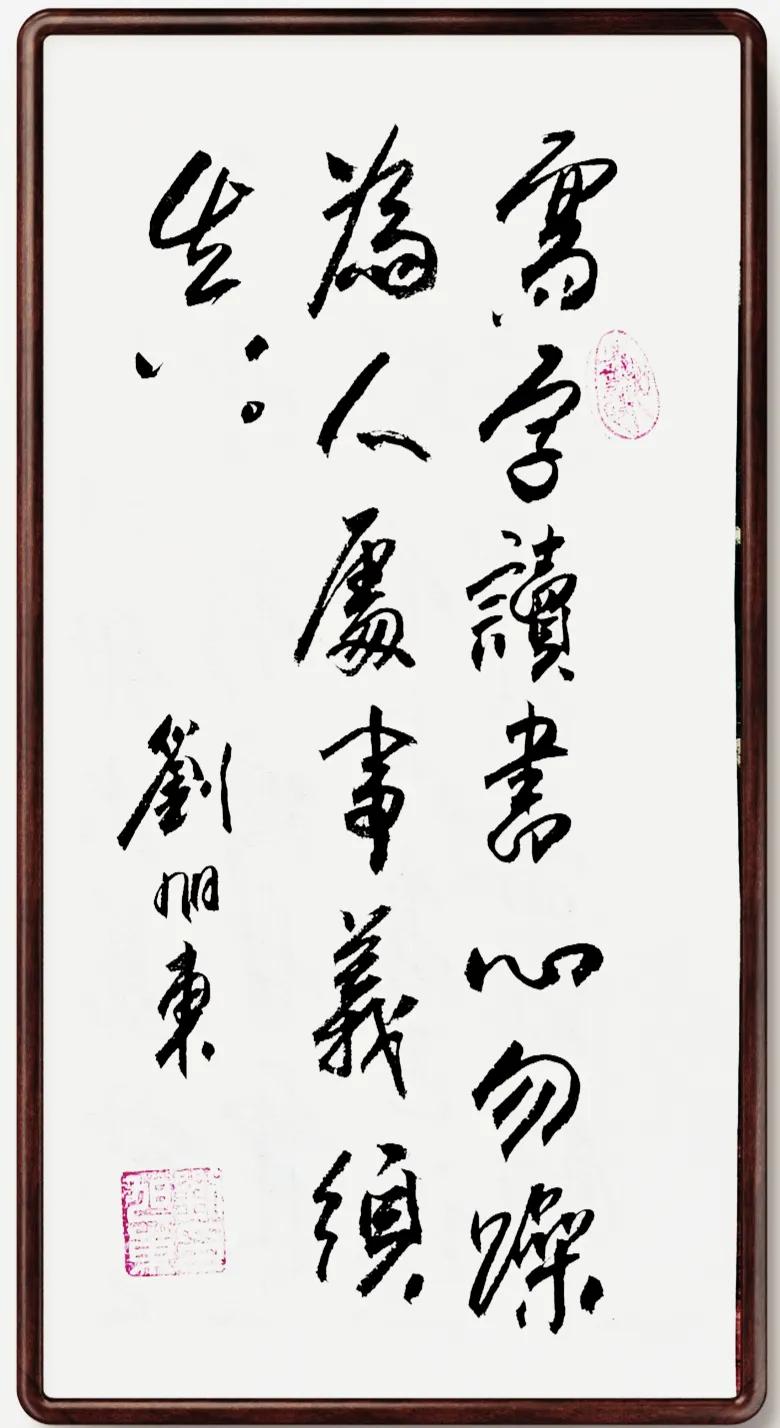 寫字讀書心勿躁
為人處事義須
真
劉旭東